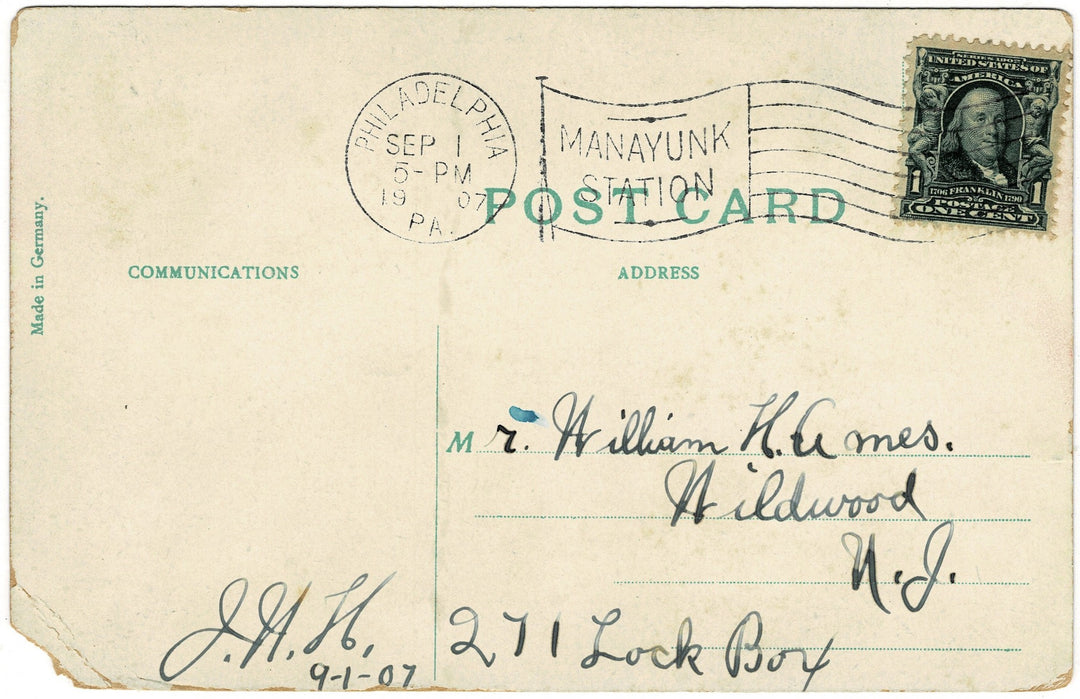 SERIES 1902
UNITED STATES OF
AMERICA
1 1706 FRANKLIN 1790 1
POSTAGE
ONE CENT
PHILADELPHIA
SEP 1
5-PM
19 07
PA.
MANAYUNK
STATION
POST CARD
Made in Germany.
COMMUNICATIONS
ADDRESS
Mr. William H. Ames.
Wildwood
N.J.
271 Lock Box
J.H.H.
9-1-07